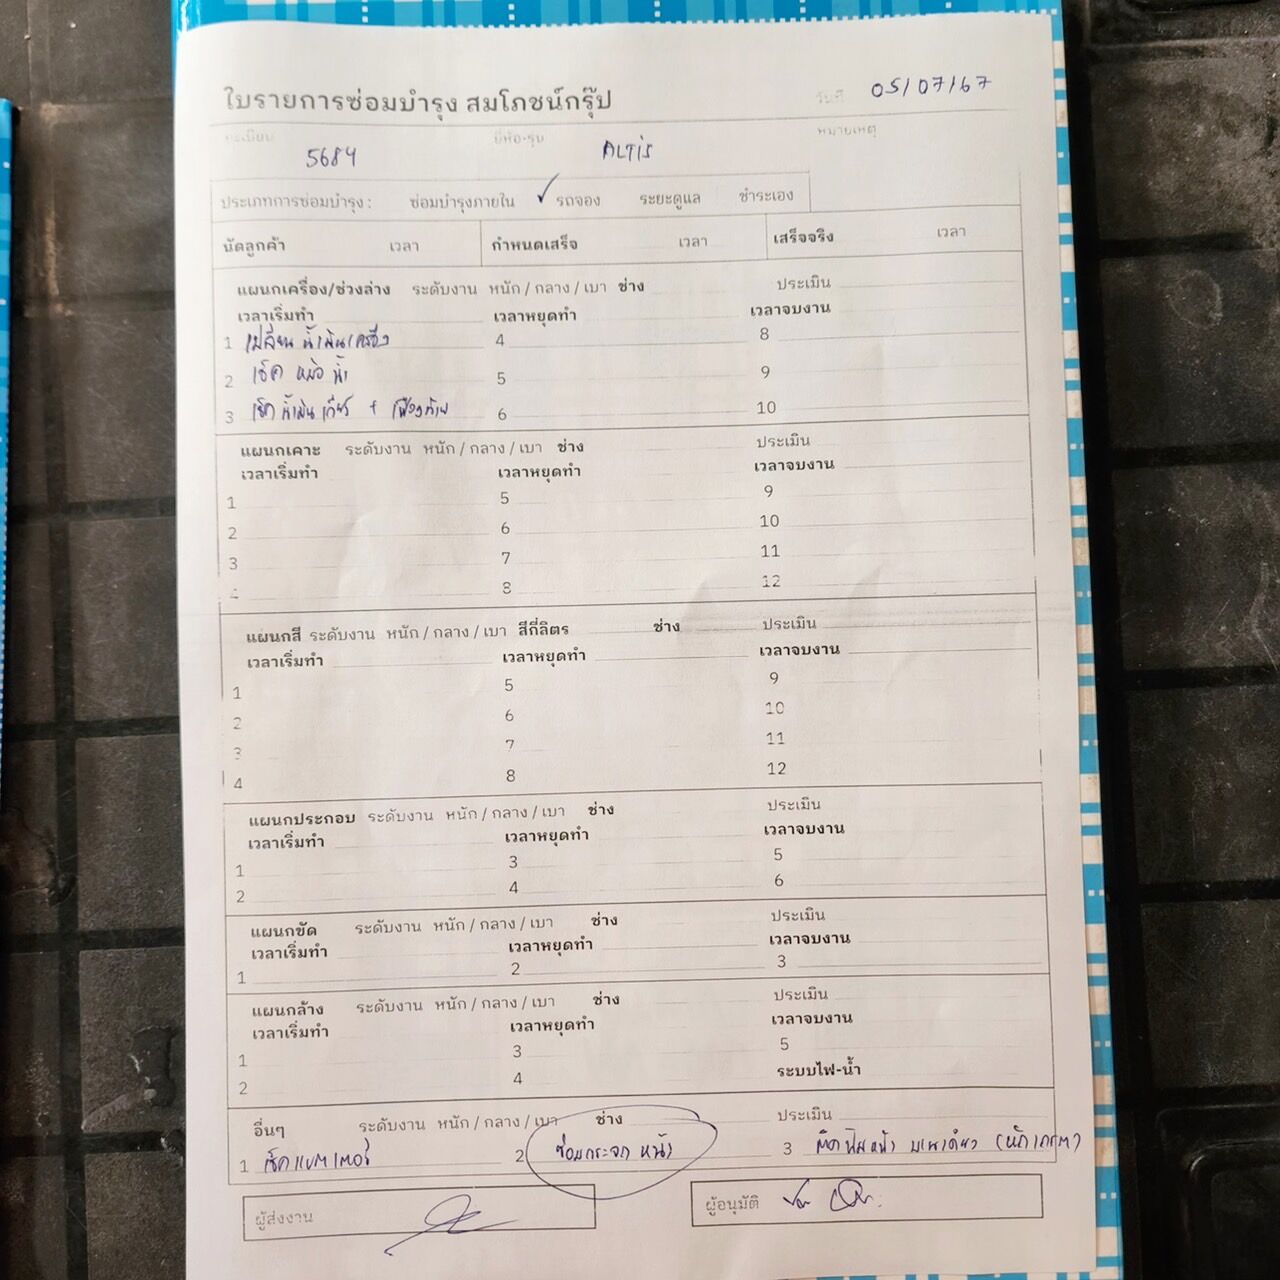 ใบรายการซ่อมบำรุง สมโภชน์กรุ๊ป วันที่ 05/07/67
ทะเบียน ยี่ห้อ-รุ่น หมายเหตุ
5684 ALTIS
ประเภทการซ่อมบำรุง : ซ่อมบำรุงภายใน ✓ รถจอง ระยะดูแล ชำระเอง
นัดลูกค้า เวลา กำหนดเสร็จ เวลา เสร็จจริง เวลา
แผนกเครื่อง/ช่วงล่าง ระดับงาน หนัก / กลาง / เบา ช่าง ประเมิน
เวลาเริ่มทำ เวลาหยุดทำ เวลาจบงาน
1 เปลี่ยนน้ำมันเครื่อง 4 8
2 เช็ค หม้อน้ำ 5 9
3 เช็คน้ำมันเกียร์ + เฟืองท้าย 6 10
แผนกเคาะ ระดับงาน หนัก / กลาง / เบา ช่าง ประเมิน
เวลาเริ่มทำ เวลาหยุดทำ เวลาจบงาน
1 5 9
2 6 10
3 7 11
4 8 12
แผนกสี ระดับงาน หนัก / กลาง / เบา สีกี่ลิตร ช่าง ประเมิน
เวลาเริ่มทำ เวลาหยุดทำ เวลาจบงาน
1 5 9
2 6 10
3 7 11
4 8 12
แผนกประกอบ ระดับงาน หนัก / กลาง / เบา ช่าง ประเมิน
เวลาเริ่มทำ เวลาหยุดทำ เวลาจบงาน
1 3 5
2 4 6
แผนกขัด ระดับงาน หนัก / กลาง / เบา ช่าง ประเมิน
เวลาเริ่มทำ เวลาหยุดทำ เวลาจบงาน
1 2 3
แผนกล้าง ระดับงาน หนัก / กลาง / เบา ช่าง ประเมิน
เวลาเริ่มทำ เวลาหยุดทำ เวลาจบงาน
1 3 5
2 4 ระบบไฟ-น้ำ
อื่นๆ ระดับงาน หนัก / กลาง / เบา ช่าง ประเมิน
1 เช็คแบตเตอรี่ 2 ซ่อมกระจก หน้า 3 ติดฟิล์มหน้า บานเดียว
ผู้ส่งงาน ผู้อนุมัติ